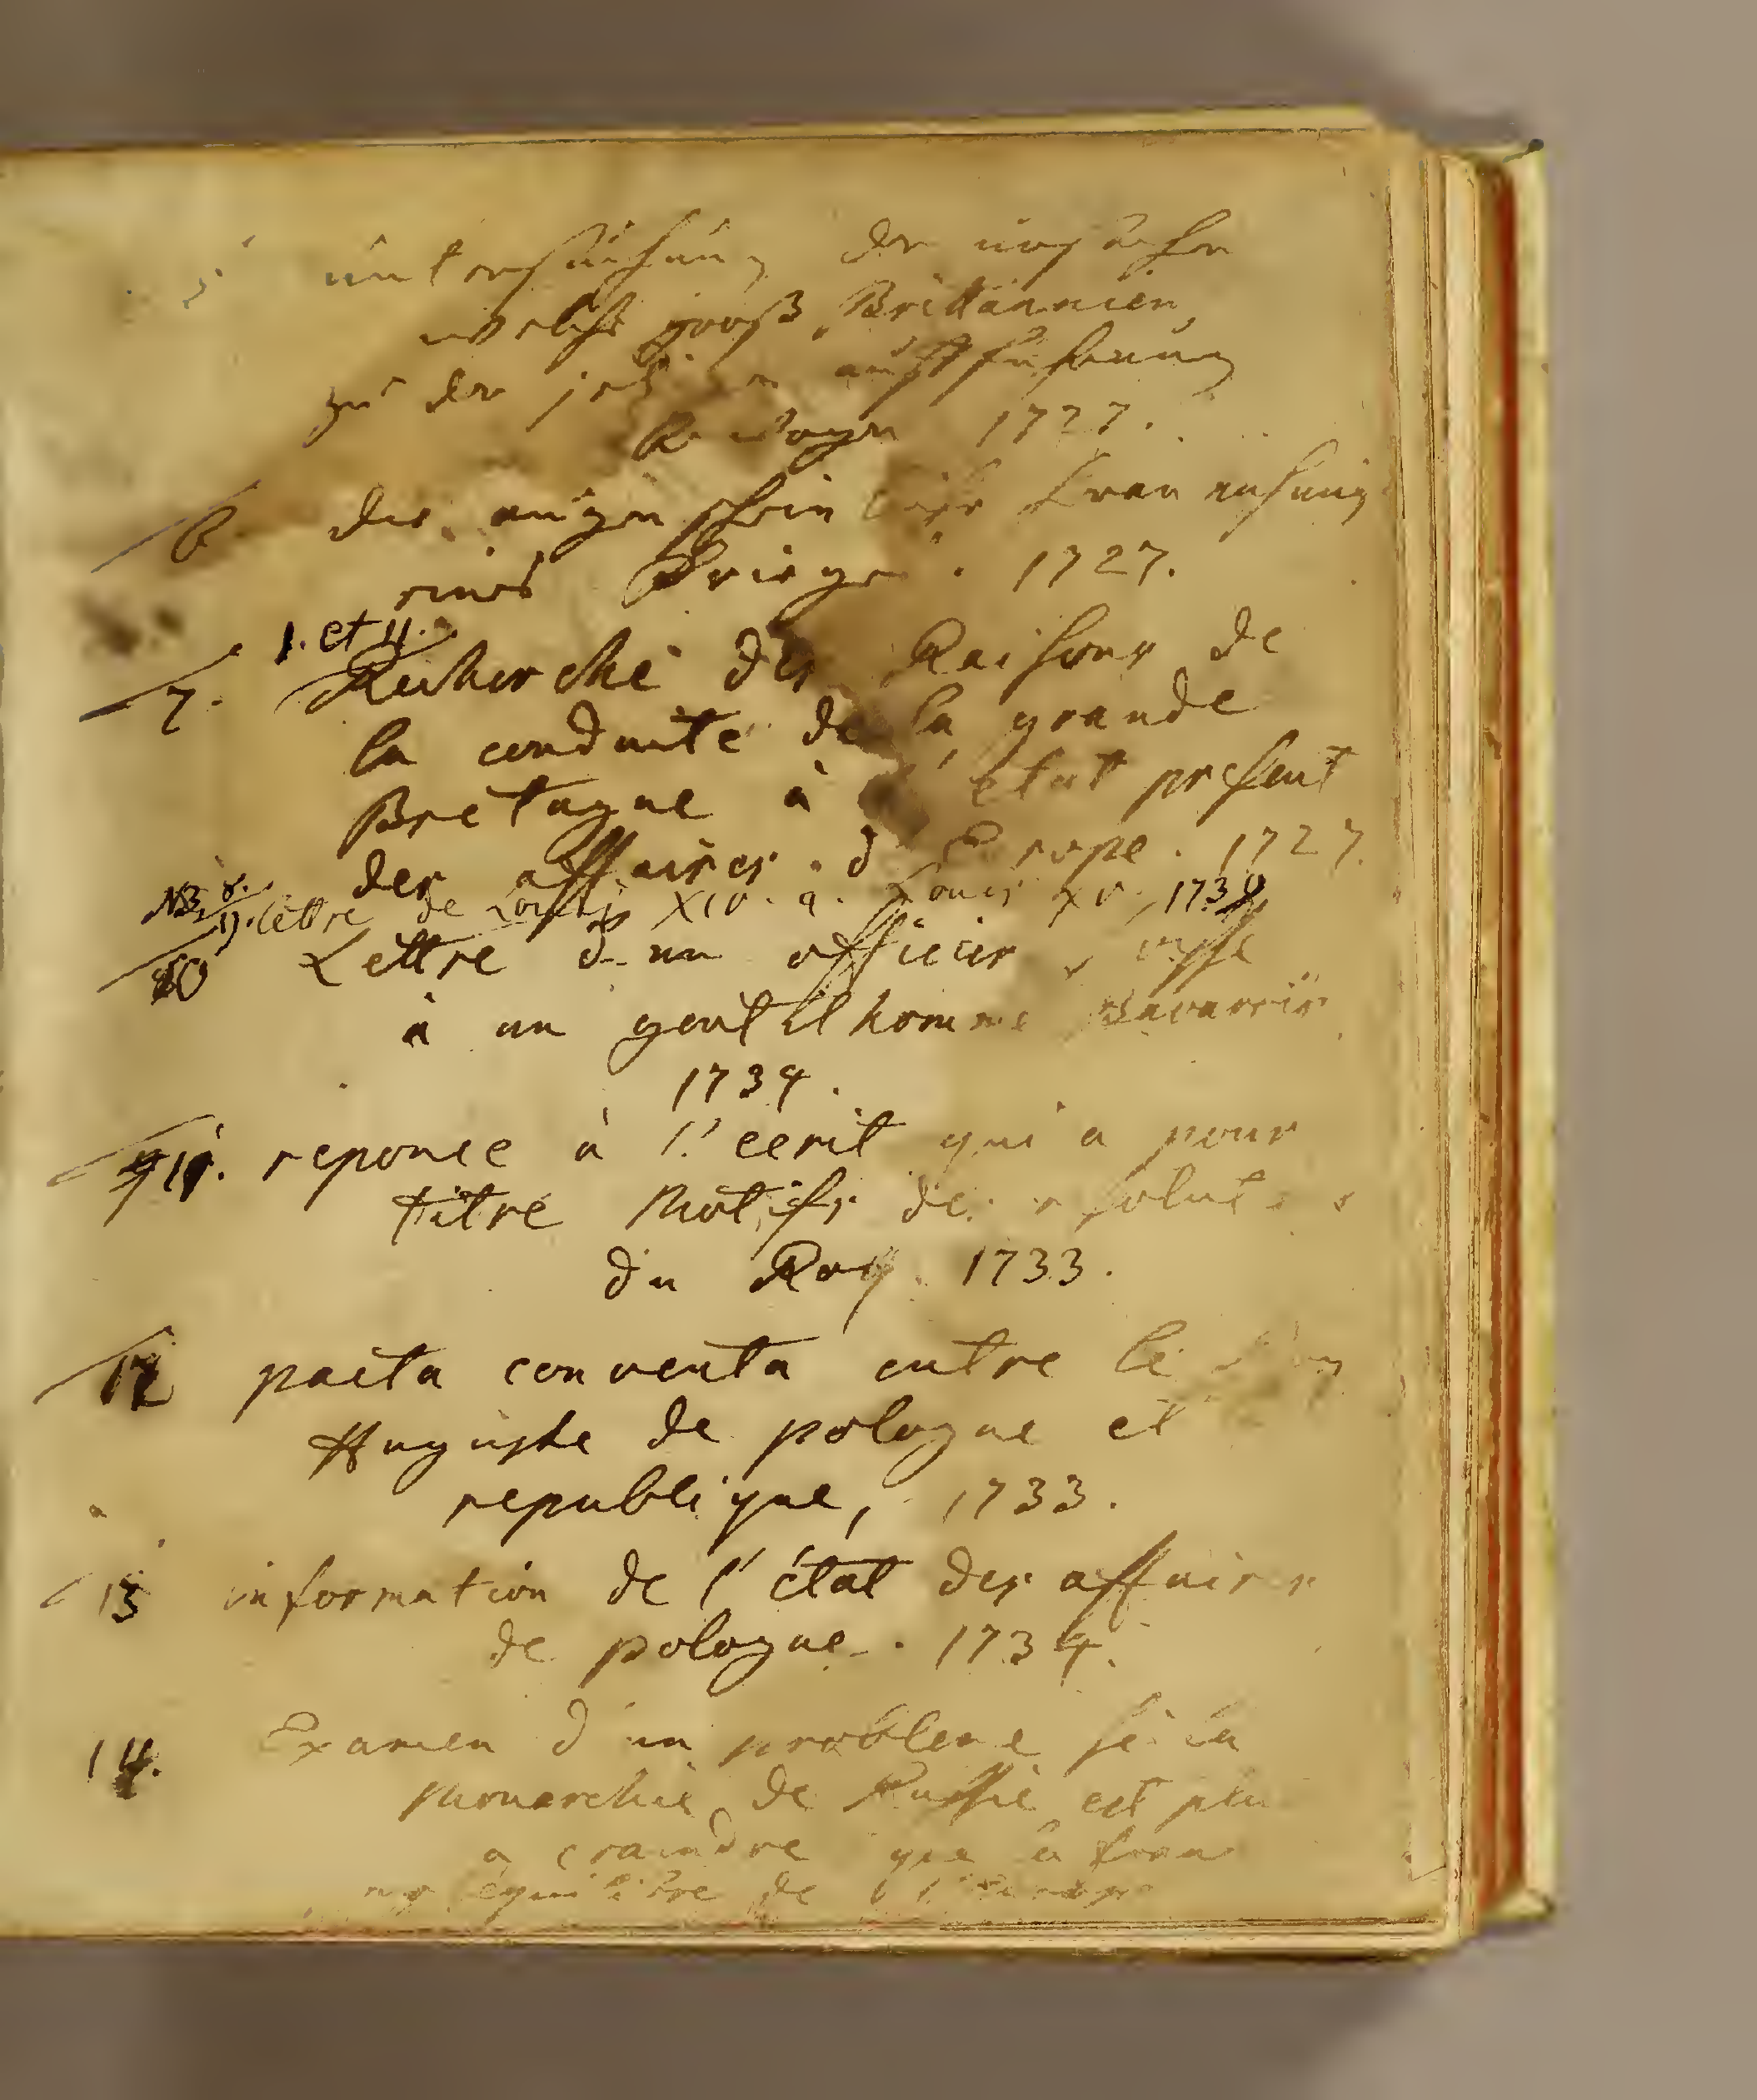 5 untersuchung der ursachen
welche groß Brittannien
zu der jetzigen aufführung
bewogen 1727.
6 der augenschein
eines Krieges. 1727.
1. et 11.
7. Recherche des Raisons de
la conduite de la grande
Bretagne à l'état present
des affaires d'Europe. 1727.
NB. 8.
9. lettre de Louis XIV. a Louis XV. 173
10 Lettre d'un officier
à un gentilhomme Bavarois
1734.
11. reponce à l'ecrit qui a pour
titre Motifs des resolut
du Roy. 1733.
12 pacta conventa entre le
Auguste de pologne et
republique, 1733.
13 information de l'état des affaires
de pologne. 1734.
14. Examen d'un probleme si la
Monarchie de Russie est plu
a craindre que
equilibre de l'Europe